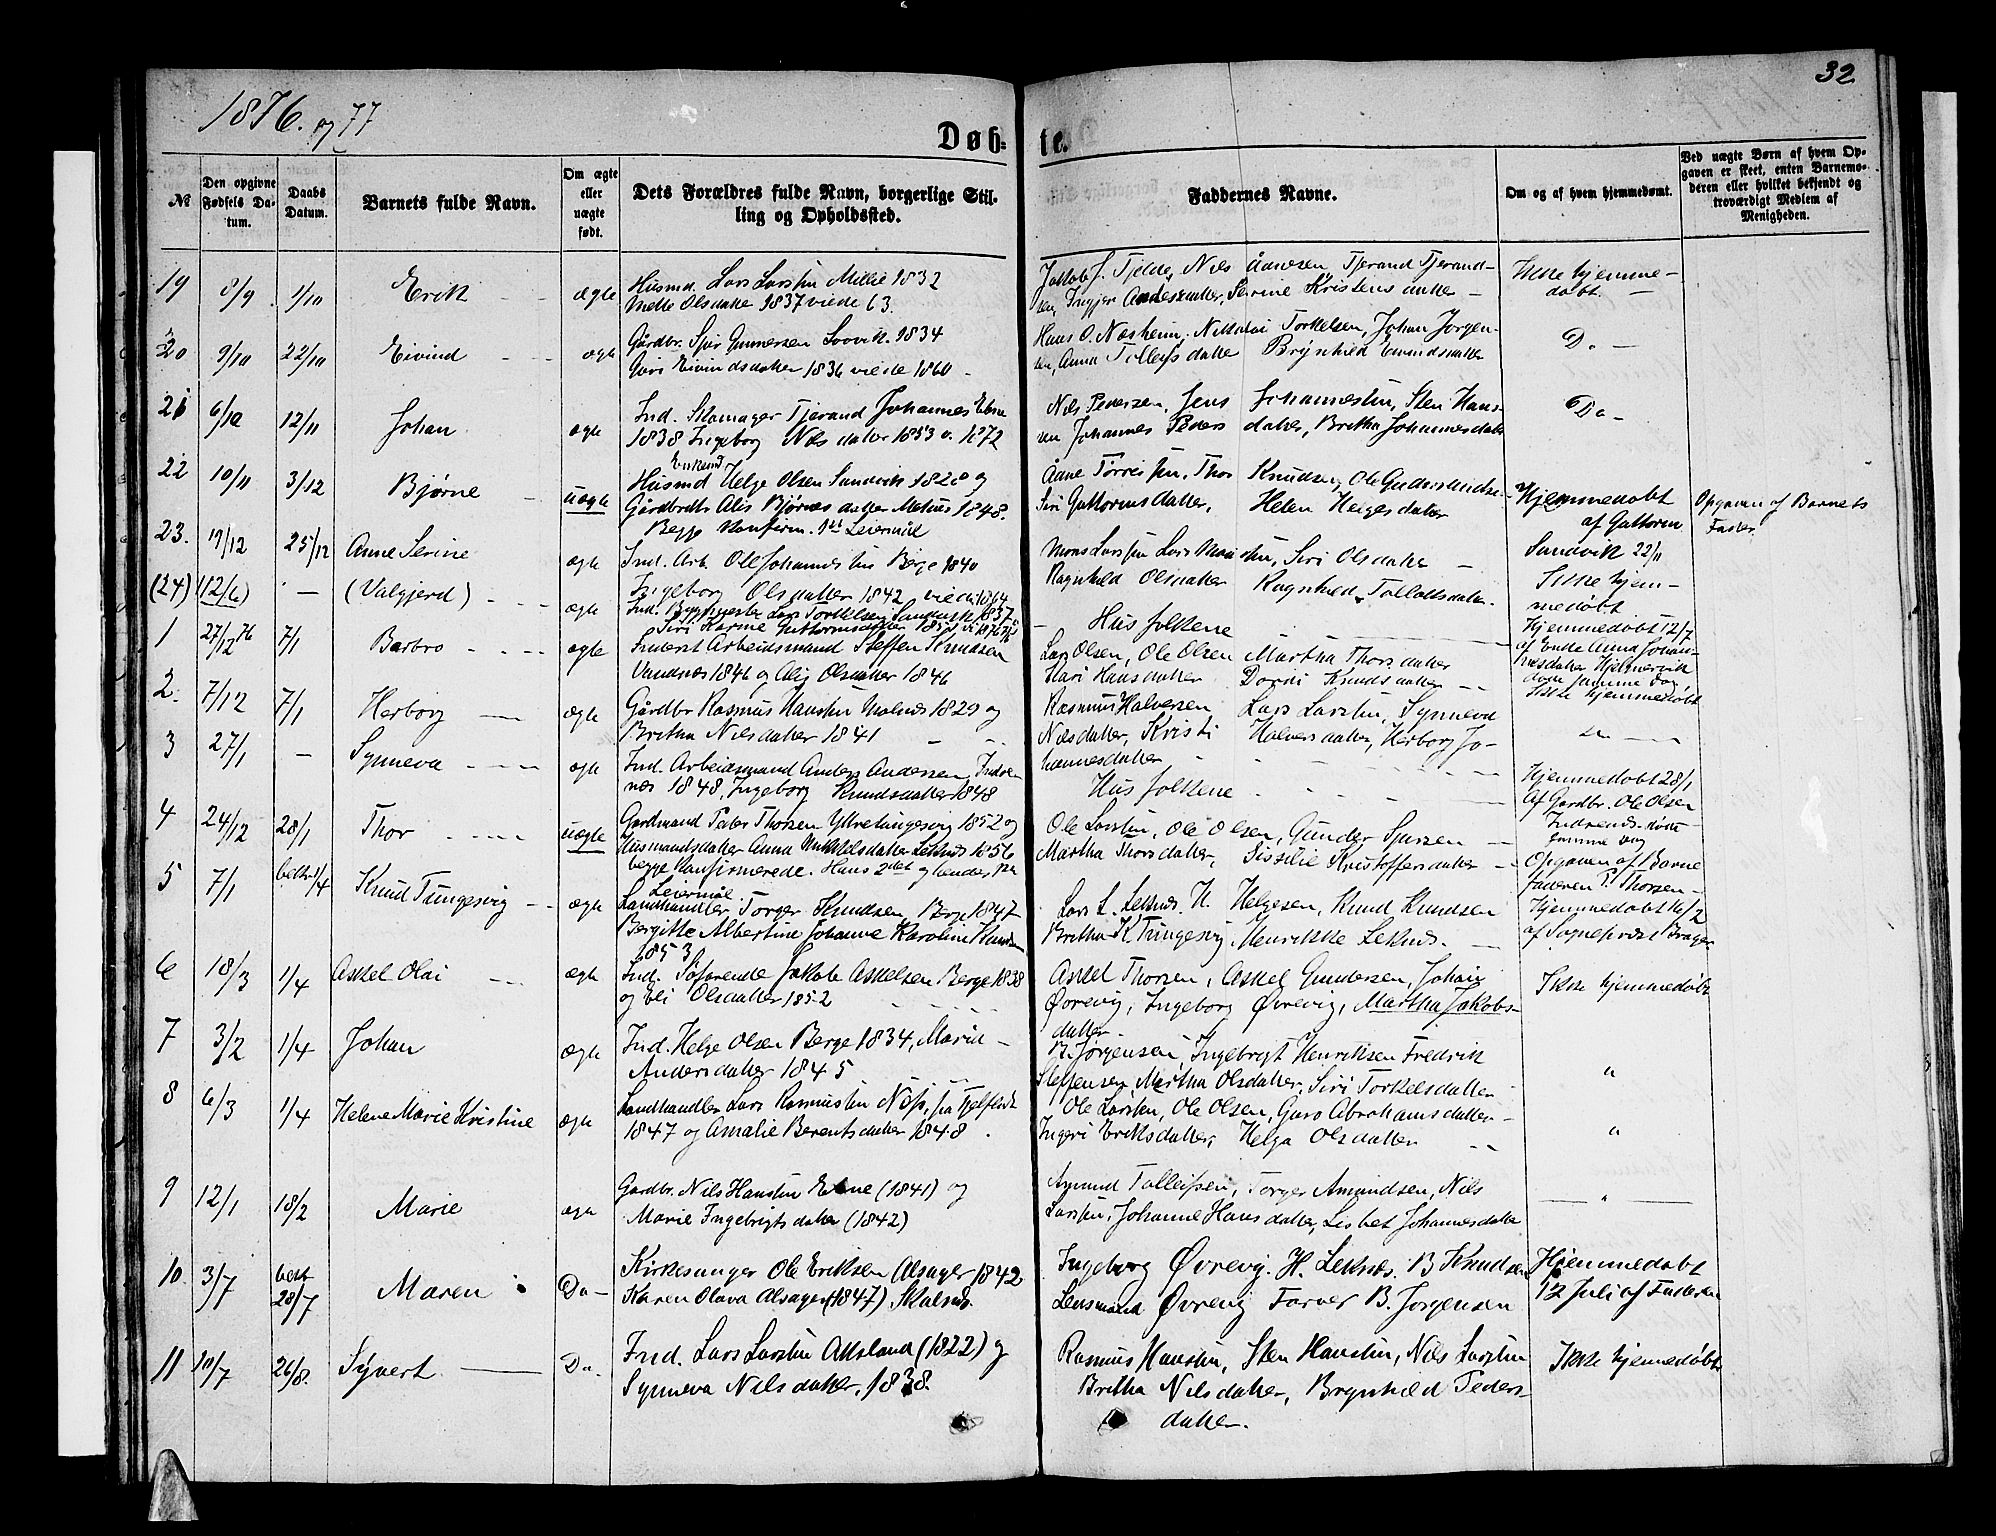 32
1876. og 77
Døb-
te.
№
Den opgivne Fødsels Da-
tum.
Daabs
Datum.
Barnets fulde Navn.
Om ægte
eller
uægte
født.
Dets Forældres fulde Navn, borgerlige Stil-
ling og Opholdssted.
Faddernes Navne.
Om og af hvem hjemmedømt.
Ved uægte Børn af hvem Op-
gaven er skeet, enten Barnemo-
deren eller hvilket bekjendt og
troværdigt Medlem af
Menigheden.
19 8/9 1/10 Erik ægte Husmd. Lars Larssen 1832
Mette Olsdatter 1837 viede 63.
Jakob J. Tjelde, Nils Tjerand Tjerand-
sen, Serine Kristensdatter
Ikke hjemme-
døbt.
20 9/10 22/10 Eivind ægte Gårdbr. Gunnersen 1834
Guri Eivindsdatter 1836 viede 1860
Hans O. Næsheim, Nikolai Torkelsen, Johan Jørgen-
sen, Anna Tolleifsdatter
Do
21 6/10 12/11 Johan ægte Ind. Skomager Tjerand Johannes Ebne
1838 Ingeborg Nilsdatter 1853 v. 1872
Nils Pedersen, Jens Johannessen, Sten Hans-
sen Johannes Peders datter, Britha Johannesdatter
Do
22 10/11 3/12 Bjørne uægte Enkemd
Husmd Helge Olsen Sandvik 1820 og
Gårdbrdtr Alis Bjørnesdatter Molnes 1848.
Begge Konfirm. 1ste Leiermål
Åane Torres sen, Thor Knudsen, Ole
Siri Guttormsdatter, Helen Helgesdatter
Hjemmedøbt
af Guttorm
Sandvik 22/11
Opgaven af Barnets
Fader
23. 19/12 25/12 Anne Serine ægte Ind. Arb. Ole Johannessen Berge 1840
Ingeborg Olsdatter 1842 viede 1864
Mons Larssen Lars Siri Olsdatter
Ragnhild Olsdatter Ragnhild
Ikke hjem-
medøbt
(24) (12/6) — (Valgjerd) ægte Ind. Bygmester Lars Torkelsen Sandvik 1837
Siri Karine Guttormsdatter
Husfolkene
Hjemmedøbt 12/7
af Enke Anna Johan-
nesdatter
døde samme Dag
1 27/12 76 7/1 Barbro ægte Inderst Arbeidsmand Steffen Knudsen
Vandnæs 1846 og Alis Olsdatter 1846
Lars Olsen, Ole Olsen Martha Thorsdatter
Kari Hansdatter Dordi Knudsdatter
Ikke hjemmedøbt
2. 7/12 7/1 Herborg ægte Gårdbr Rasmus Hanssen Molnes 1829 og
Britha Nilsdatter 1841
Rasmus Halversen Lars Larssen, Synneva
Nilsdatter, Kristi Halversdatter, Herborg Jo-
hannesdatter
3 27/1 — Synneva ægte Ind. Arbeidsmand Anders Andersen Indre
næs 1848, Ingeborg Knudsdatter 1848
Husfolkene
Hjemmedøbt 28/1
af Gardbr. Ole Olsen
Indrenæs. døde
samme Dag
4 24/12 28/1 Thor uægte Gardmand Peter Thorsen Ytretungesvig 1852 og
Husmandsdatter Anna Mikkelsdatter Leknes 1856
begge Konfirmerede. Hans 2det og hendes 1ste
Leiermål
Ole Larssen, Ole Olsen, Gunder
Martha Thorsdatter, Sissilie Kristoffersdatter
Opgaven af Barne
faderen P. Thorsen
5 7/1 1/4 Knud Tungesvig ægte Landhandler Torger Knudsen Berge 1847
Bergitte Albertine Johanne Karoline
1853
Lars L. Leknes. H. Helgesen, Knud Knudsen
Britha K. Tungesvig, Henrikke Leknes.
Hjemmedøbt 16/2
af Sogneprest
6 18/3 1/4 Askel Olai ægte Ind. Søfarende Jakob Askelsen Berge 1838
og Eli Olsdatter 1852
Askel Thorsen, Askel Gundersen, Johan
Øvrevig, Ingeborg Øvrevig, Martha Jakobs-
datter
Ikke hjemmedøbt
7 3/2 1/4 Johan ægte Ind. Helge Olsen Berge 1834, Maria
Andersdatter 1845
B. Jørgensen, Ingebrigt Henriksen Fredrik
Steffensen Martha Olsdatter, Siri Torkelsdatter
"
8 6/3 1/4 Helene Marie Kristine ægte Landhandler Lars Rasmussen
1847 og Amalie Berentsdatter 1848.
Ole Larssen, Ole Olsen, Guro Abrahamsdatter
Ingeri Eriksdatter, Helga Olsdatter
"
9 12/1 18/2 Marie ægte Gardbr. Nils Hanssen Ebne (1841) og
Marie Ingebrigtsdatter (1842)
Tolleifsen, Torger Amundsen, Nils
Larssen, Johanne Hansdatter, Lisbet Johannesdatter
"
10. 3/7 28/7 Maren Do Kirkesanger Ole Eriksen Alsager 1842
Karen Olava Alsager (1847)
Ingeborg Øvrevig. H. Leknes. B Knudsen
Lensmand Øvrevig Farver B. Jørgensen
Hjemmedøbt
12 Juli af Faderen
11 10/7 26/8. Syvert Do. Ind. Lars Larssen (1822) og
Synneva Nilsdatter. 1838.
Rasmus Hanssen, Sten Hanssen, Nils Larssen
Britha Nilsdatter, Brynhild Peders-
datter.
Ikke hjemmedøbt